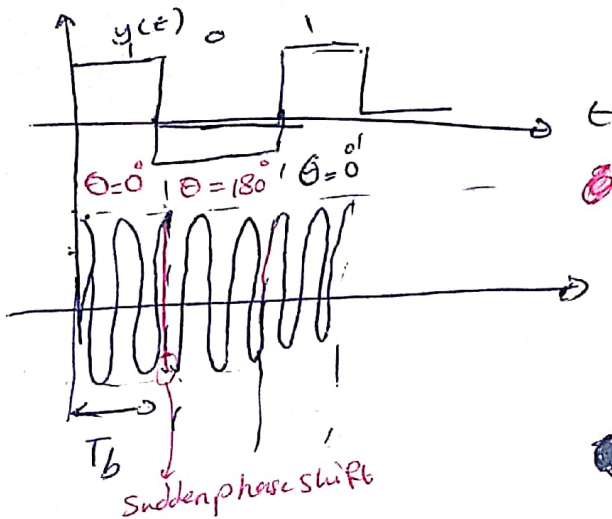 y(t) 0 1
1
t
θ=0° θ=180° θ=0°
Tb
Sudden phase shift